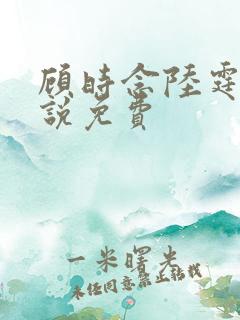 顾时念陸霆
說免費
一米曙光
未经同意禁止转载